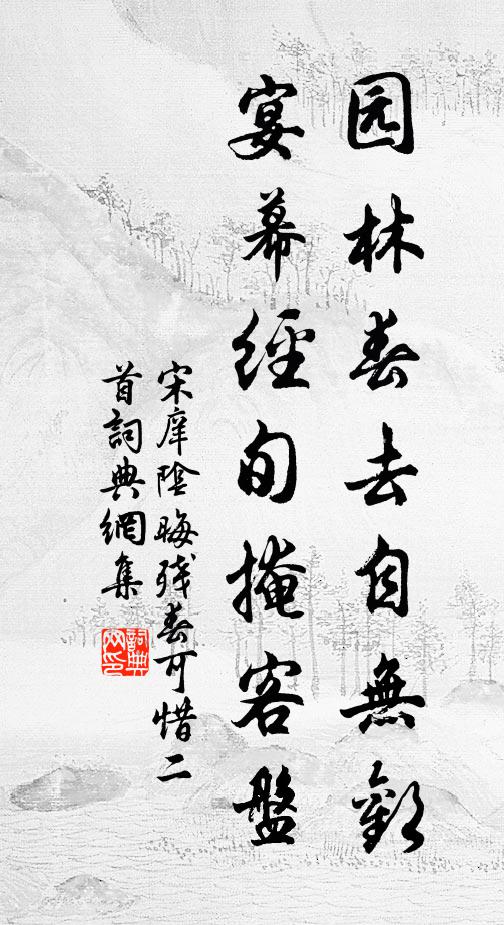 园林春去自無歡
宴幕經旬掩客盤
宋庠陰晦残春可惜二
首詞典網集
詞典網印